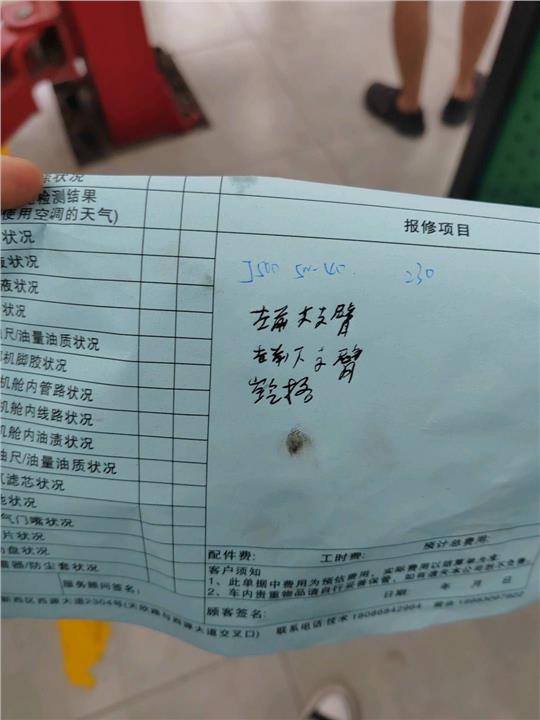 状况
检测结果
使用空调的天气)
状况
报修项目
状况
J500 5W-40 230
液状况
状况
左前大支臂
尺/油量油质状况
左前下支臂
机脚胶状况
机舱内管路状况
机舱内线路状况
机舱内油渍状况
尺/油量油质状况
滤芯状况
状况
气门嘴状况
预计总费用:
片状况
配件费: 工时费:
盘状况
客户须知
1、此单据中费用为预估费用,实际费用以结算单为准。
/防尘套状况
2、车内贵重物品请自行妥善保管,如有遗失本公司概不负责。
服务顾问签名:
日期: 年 月 日
顾客签名:
新西区西源大道2304号(天欣路与西源大道交叉口) 联系电话 技术